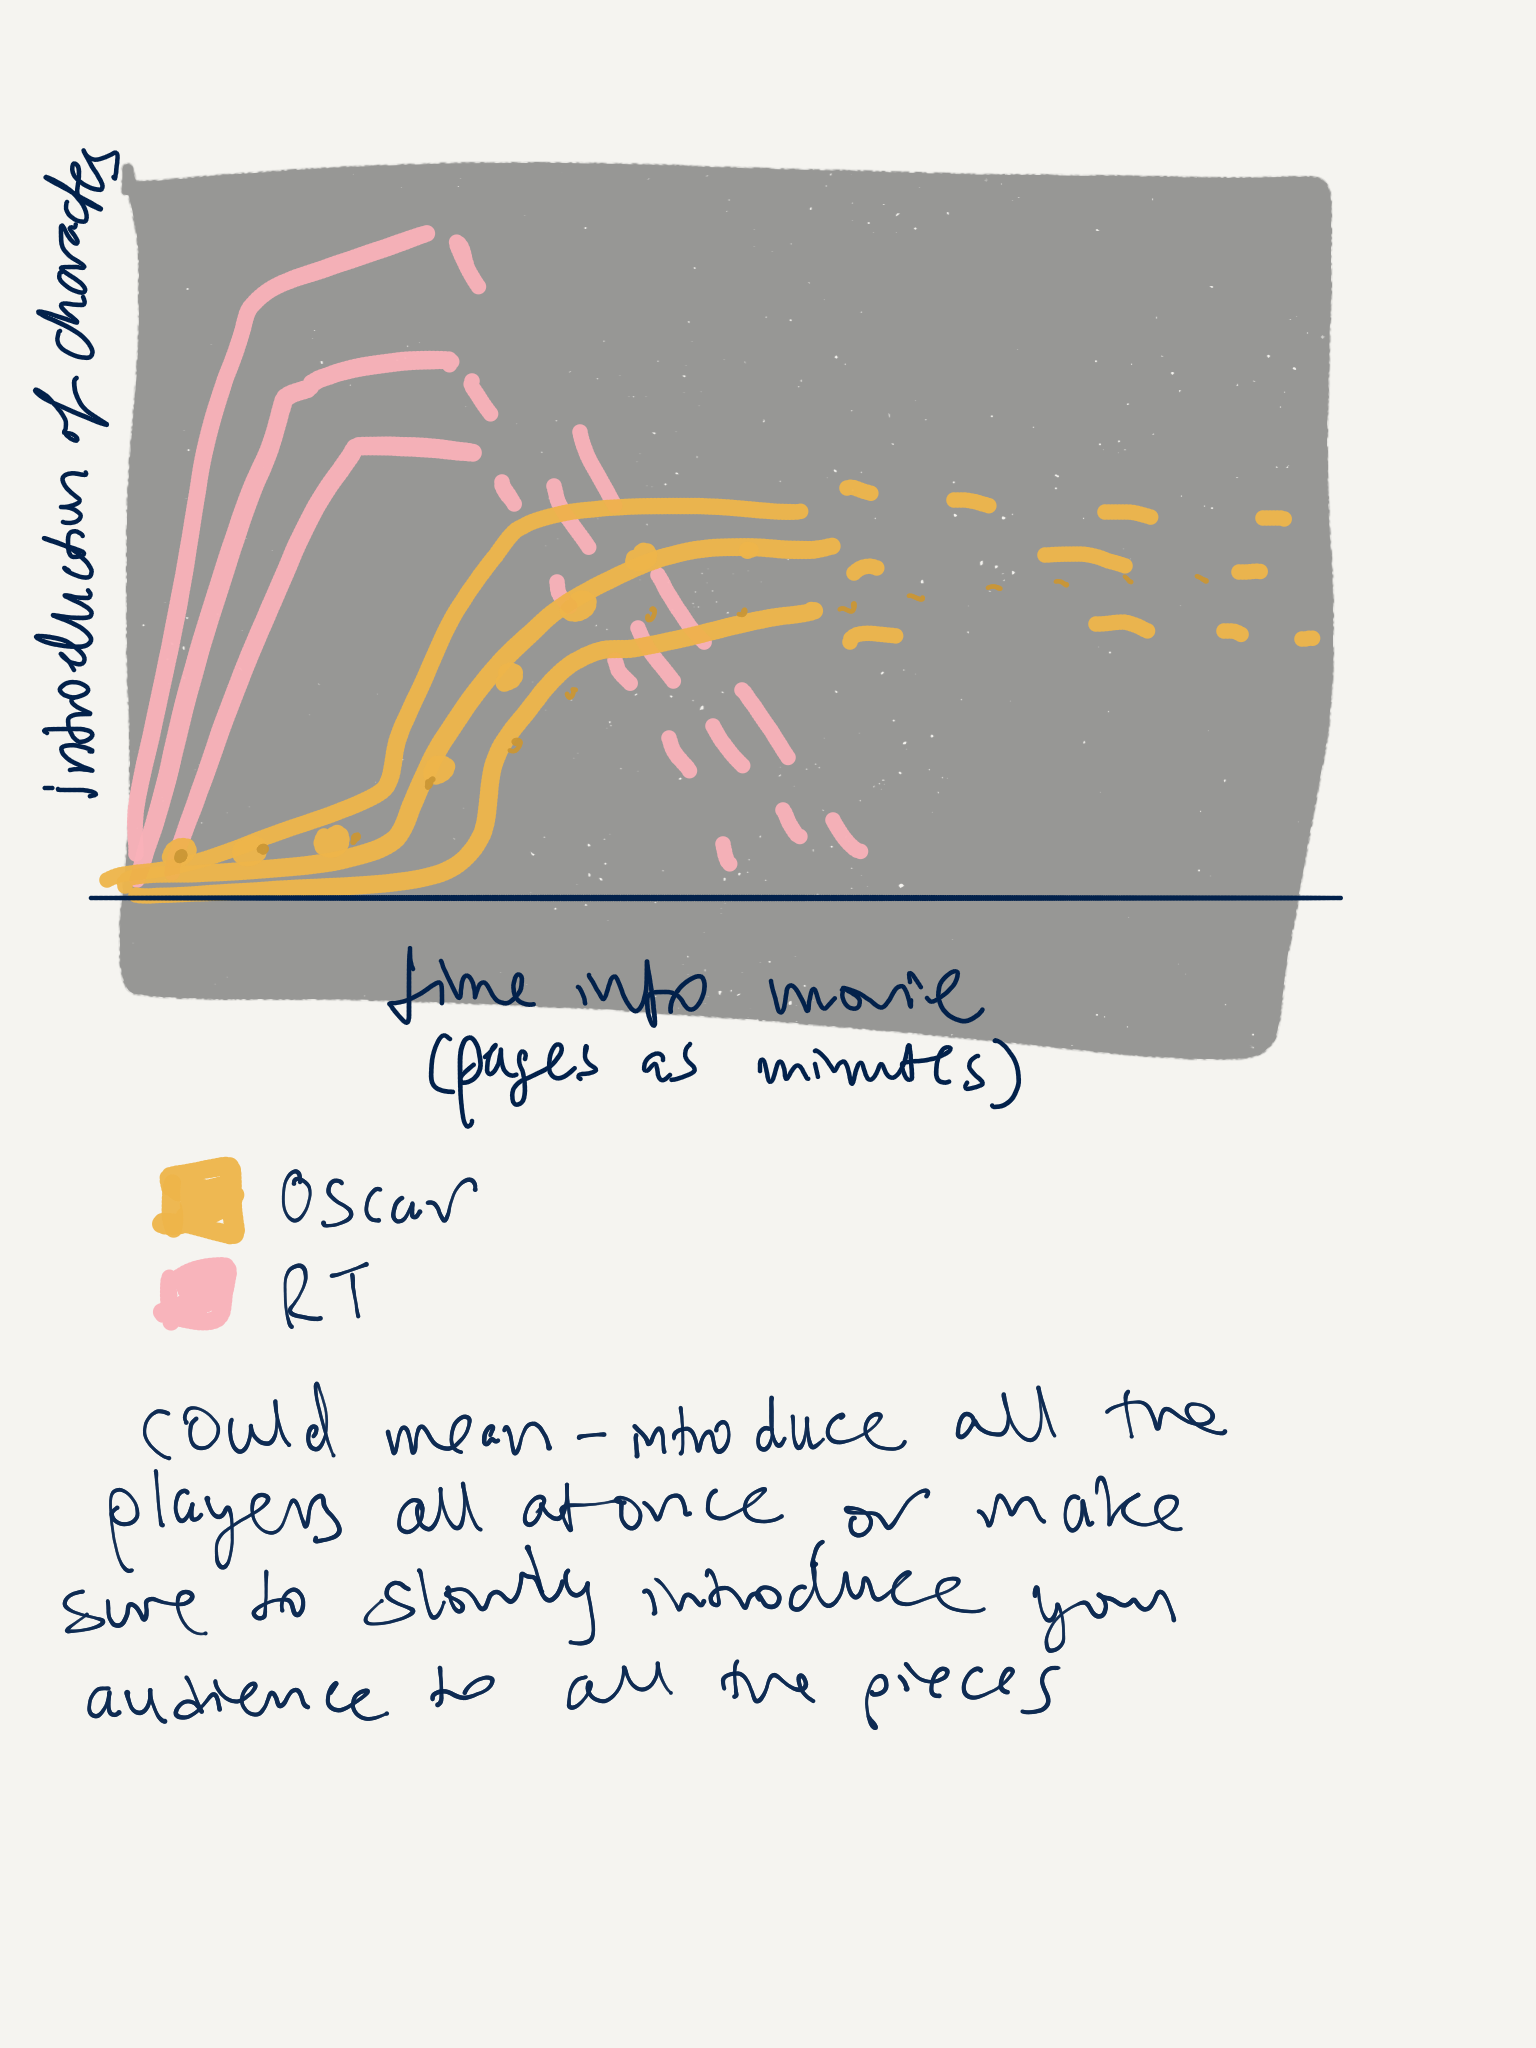 introduction of characters
time into movie
(pages as minutes)
Oscar
RT
could mean - introduce all the
players all at once or make
sure to slowly introduce your
audience to all the pieces